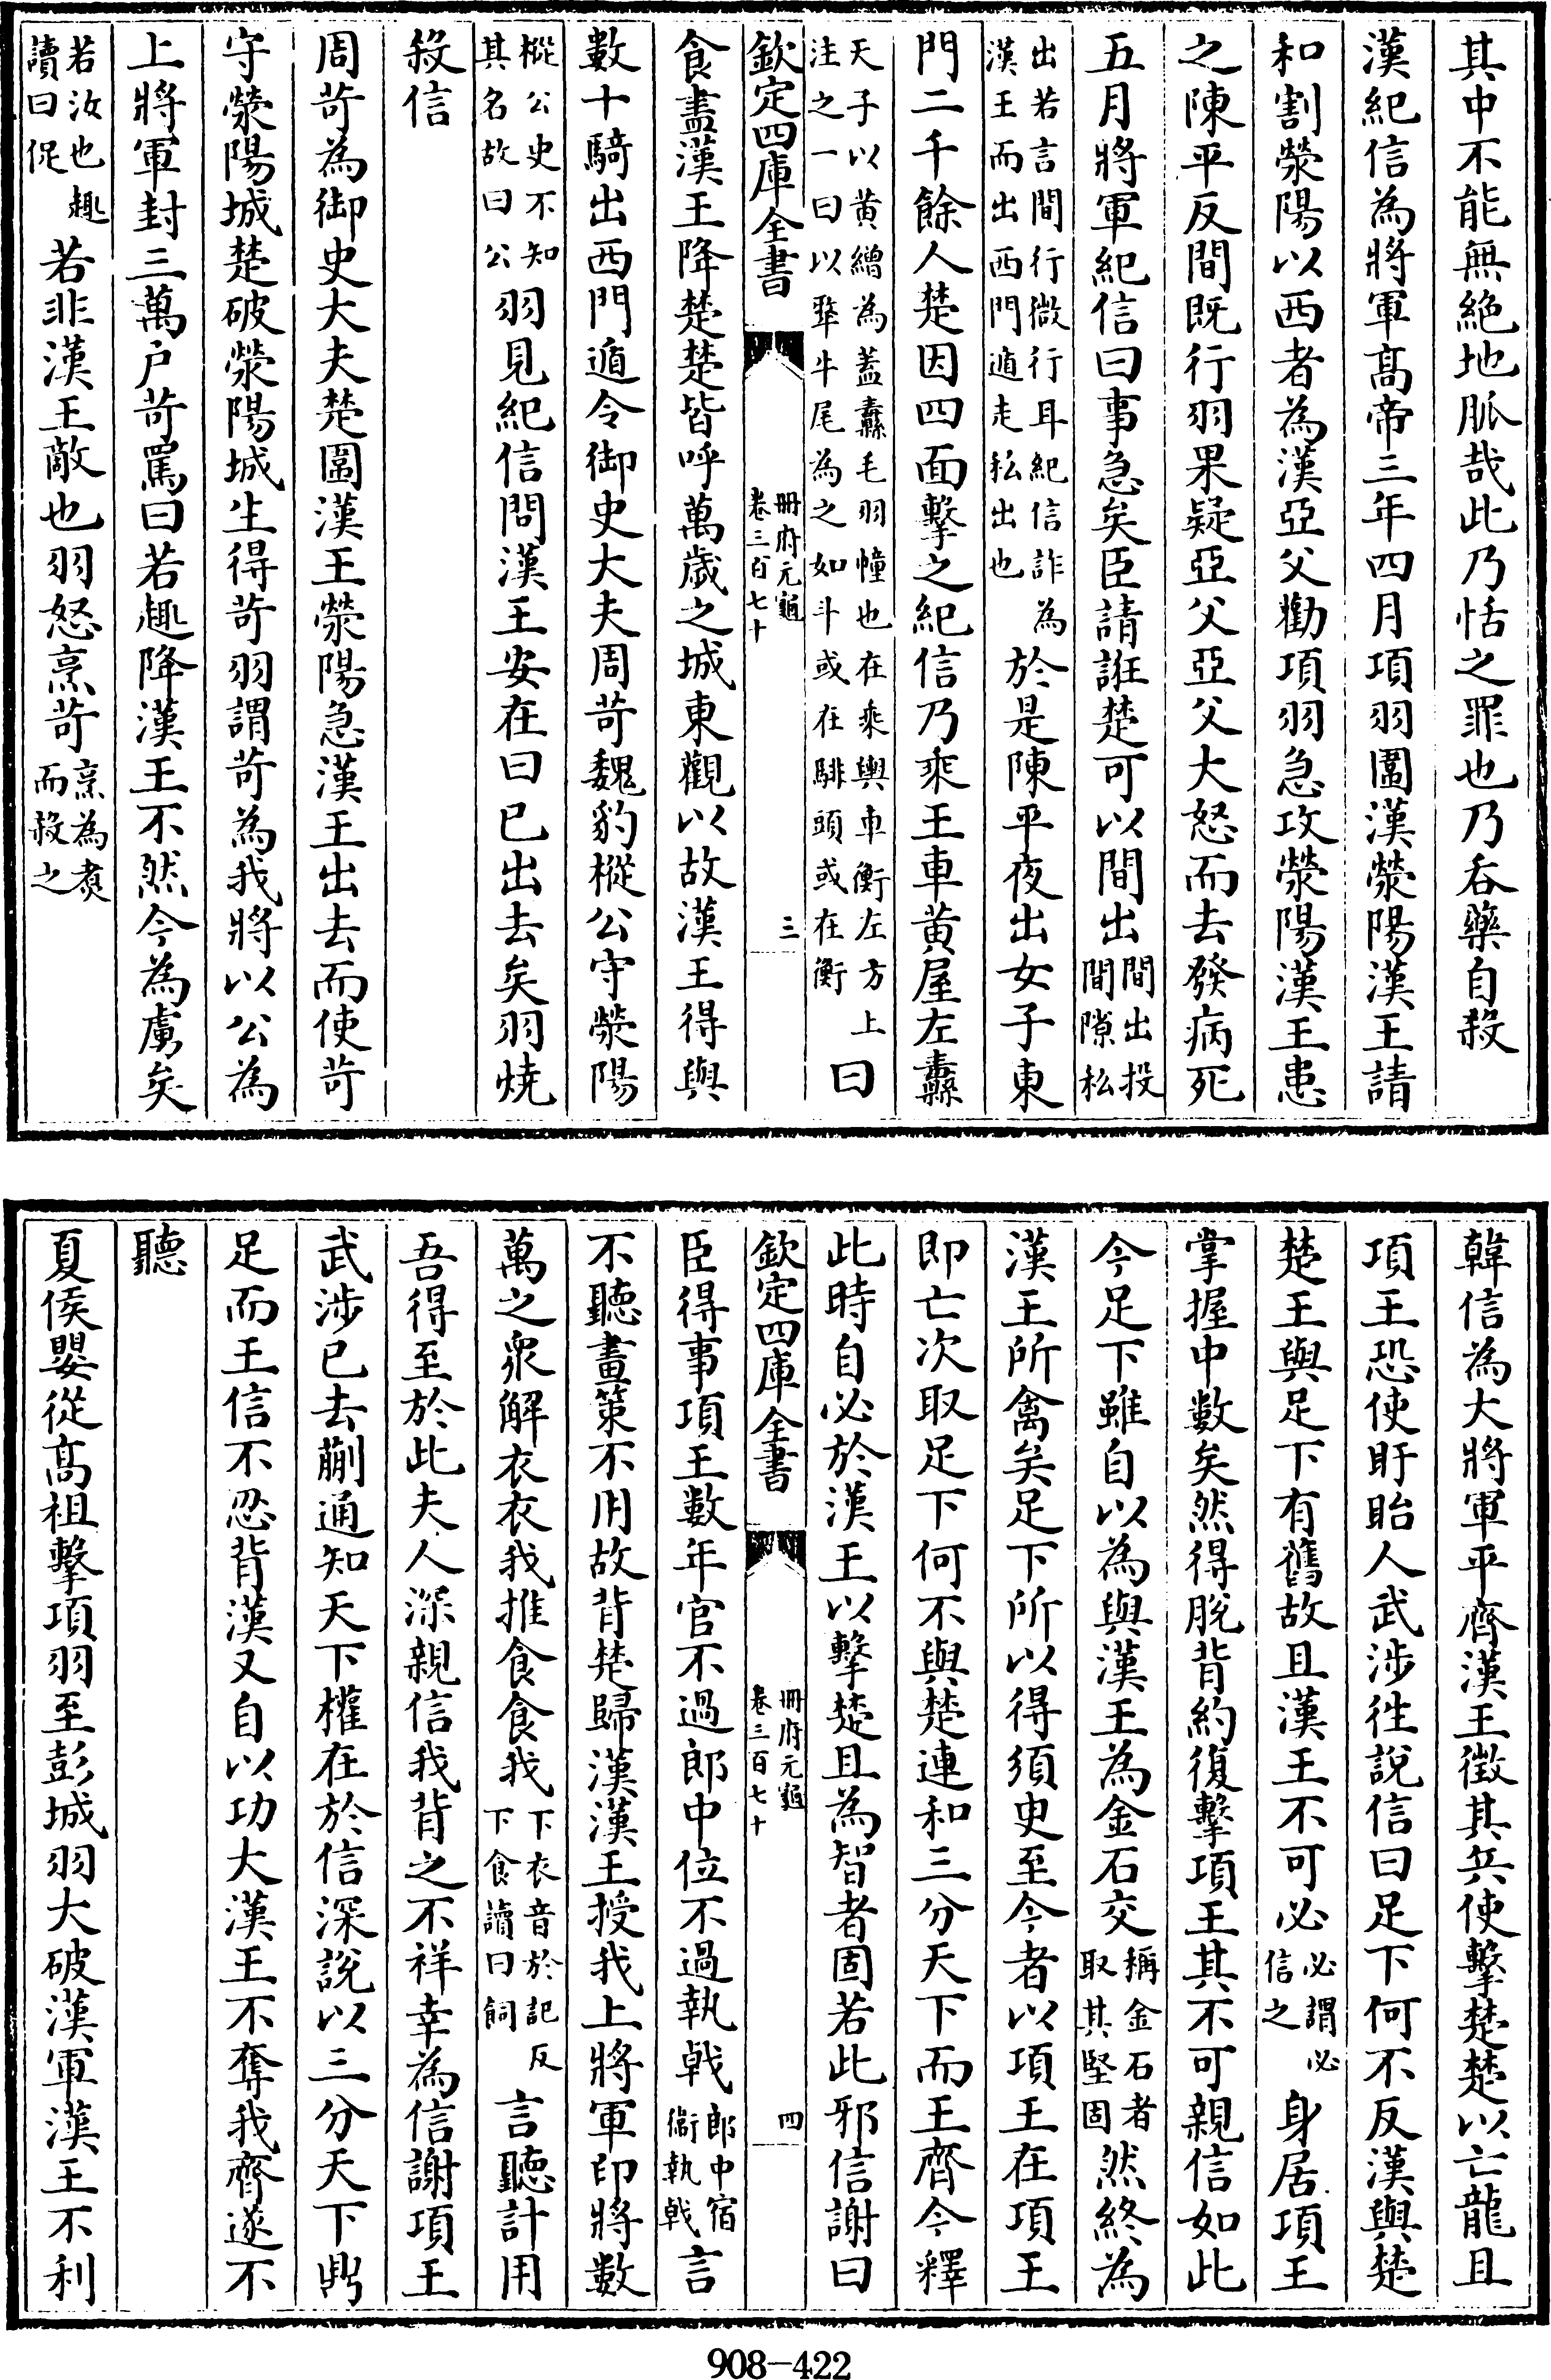 其中不能無絶地脈哉此乃恬之罪也乃吞藥自殺
漢紀信為將軍髙帝三年四月項羽圍漢滎陽漢王請
和割滎陽以西者為漢亞父勸項羽急攻滎陽漢王患
之陳平反間既行羽果疑亞父亞父大怒而去發病死
五月將軍紀信曰事急矣臣請誑楚可以間出間出投間隙私
出若言間行微行耳紀信詐為漢王而出西門遁走私出也於是陳平夜出女子東
門二千餘人楚因四面擊之紀信乃乘王車黄屋左纛
天子以黄繒為蓋纛毛羽幢也在乘輿車衡左方上注之一曰以犛牛尾為之如斗或在騑頭或在衡曰
欽定四庫全書 冊府元龜 卷三百七十 三
食盡漢王降楚楚皆呼萬歲之城東觀以故漢王得與
數十騎出西門遁令御史大夫周苛魏豹樅公守滎陽
樅公史不知其名故曰公羽見紀信問漢王安在曰已出去矣羽燒
殺信
周苛為御史大夫楚圍漢王滎陽急漢王出去而使苛
守滎陽城楚破滎陽城生得苛羽謂苛為我將以公為
上將軍封三萬户苛罵曰若趣降漢王不然今為虜矣
若汝也趣讀曰促若非漢王敵也羽怒烹苛烹為煑而殺之
韓信為大將軍平齊漢王徵其兵使擊楚楚以亡龍且
項王恐使盱眙人武涉往說信曰足下何不反漢與楚
楚王與足下有舊故且漢王不可必必謂必信之身居項王
掌握中數矣然得脫背約復擊項王其不可親信如此
今足下雖自以為與漢王為金石交稱金石者取其堅固然終為
漢王所禽矣足下所以得須臾至今者以項王在項王
即亡次取足下何不與楚連和三分天下而王齊今釋
此時自必於漢王以擊楚且為智者固若此邪信謝曰
欽定四庫全書 冊府元龜 卷三百七十 四
臣得事項王數年官不過郎中位不過執㦸郎中宿衛執㦸言
不聽畫策不用故背楚歸漢漢王授我上將軍印將數
萬之衆解衣衣我推食食我下衣音於記反下食讀曰飼言聽計用
吾得至於此夫人深親信我背之不祥幸為信謝項王
武涉已去蒯通知天下權在於信深說以三分天下鼎
足而王信不忍背漢又自以功大漢王不奪我齊遂不
聽
夏侯嬰從髙祖擊項羽至彭城羽大破漢軍漢王不利
908-422